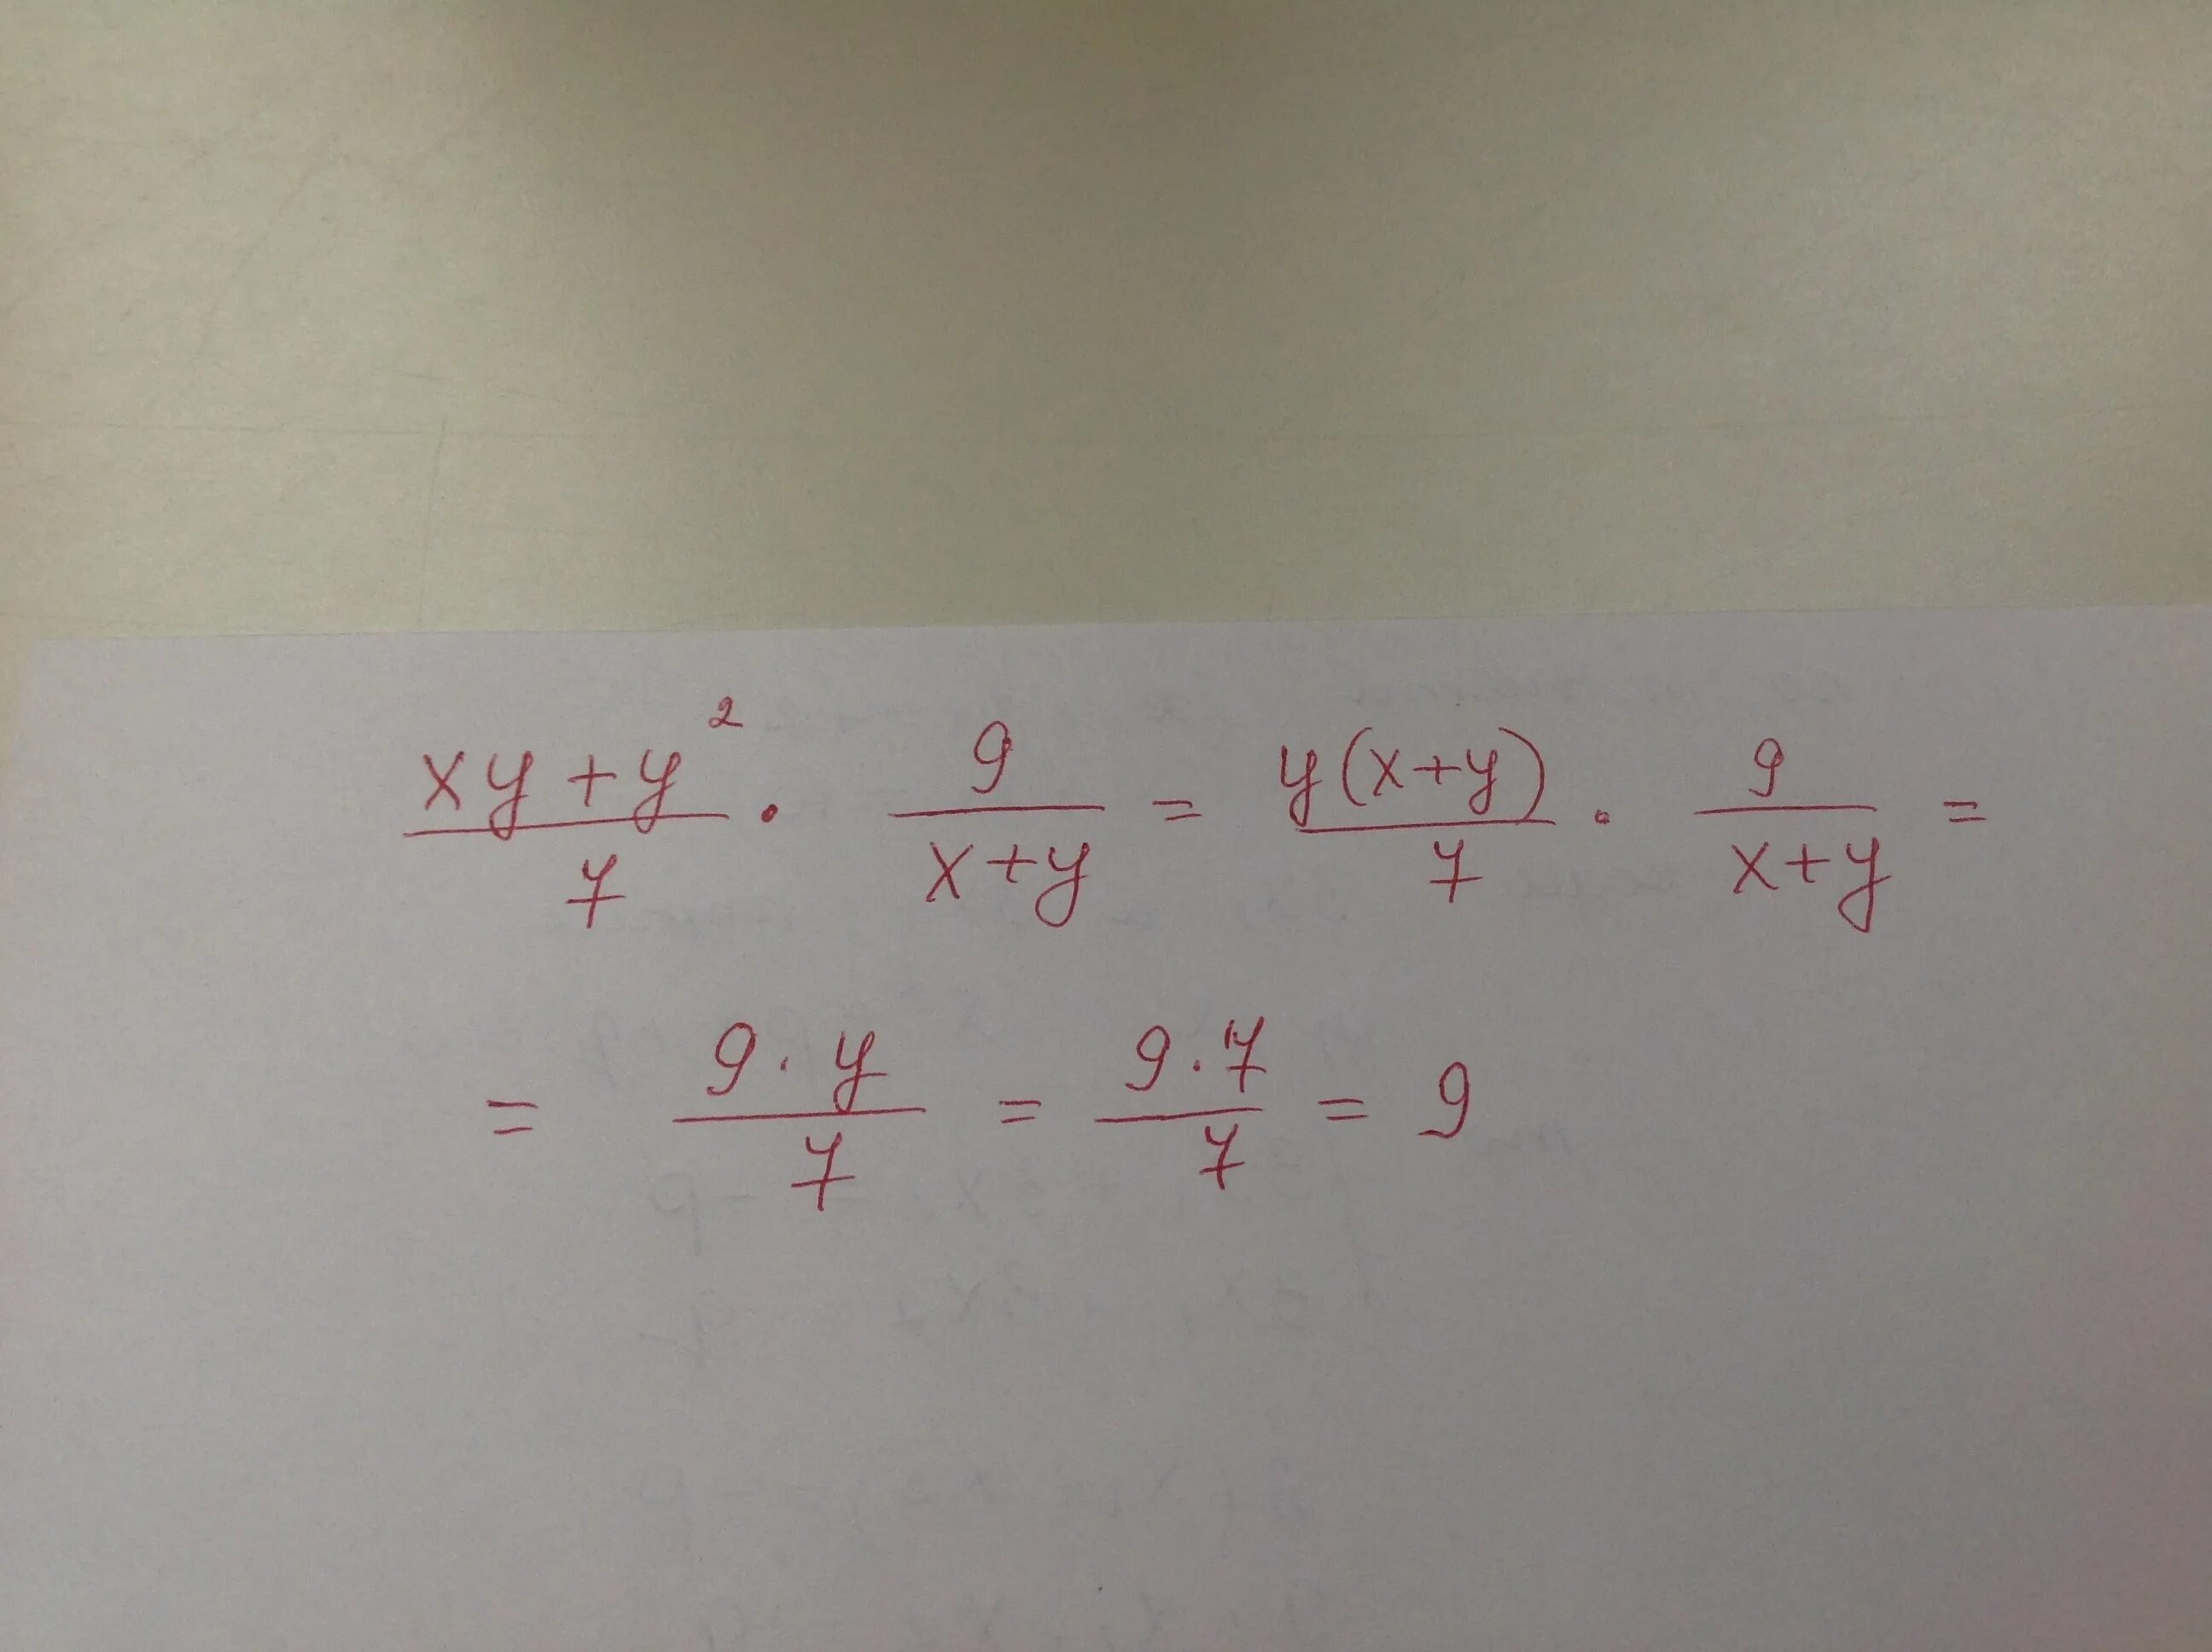 (xy+y²)/7 · 9/(x+y) = y(x+y)/7 · 9/(x+y) =
= 9·y/7 = 9·7/7 = 9